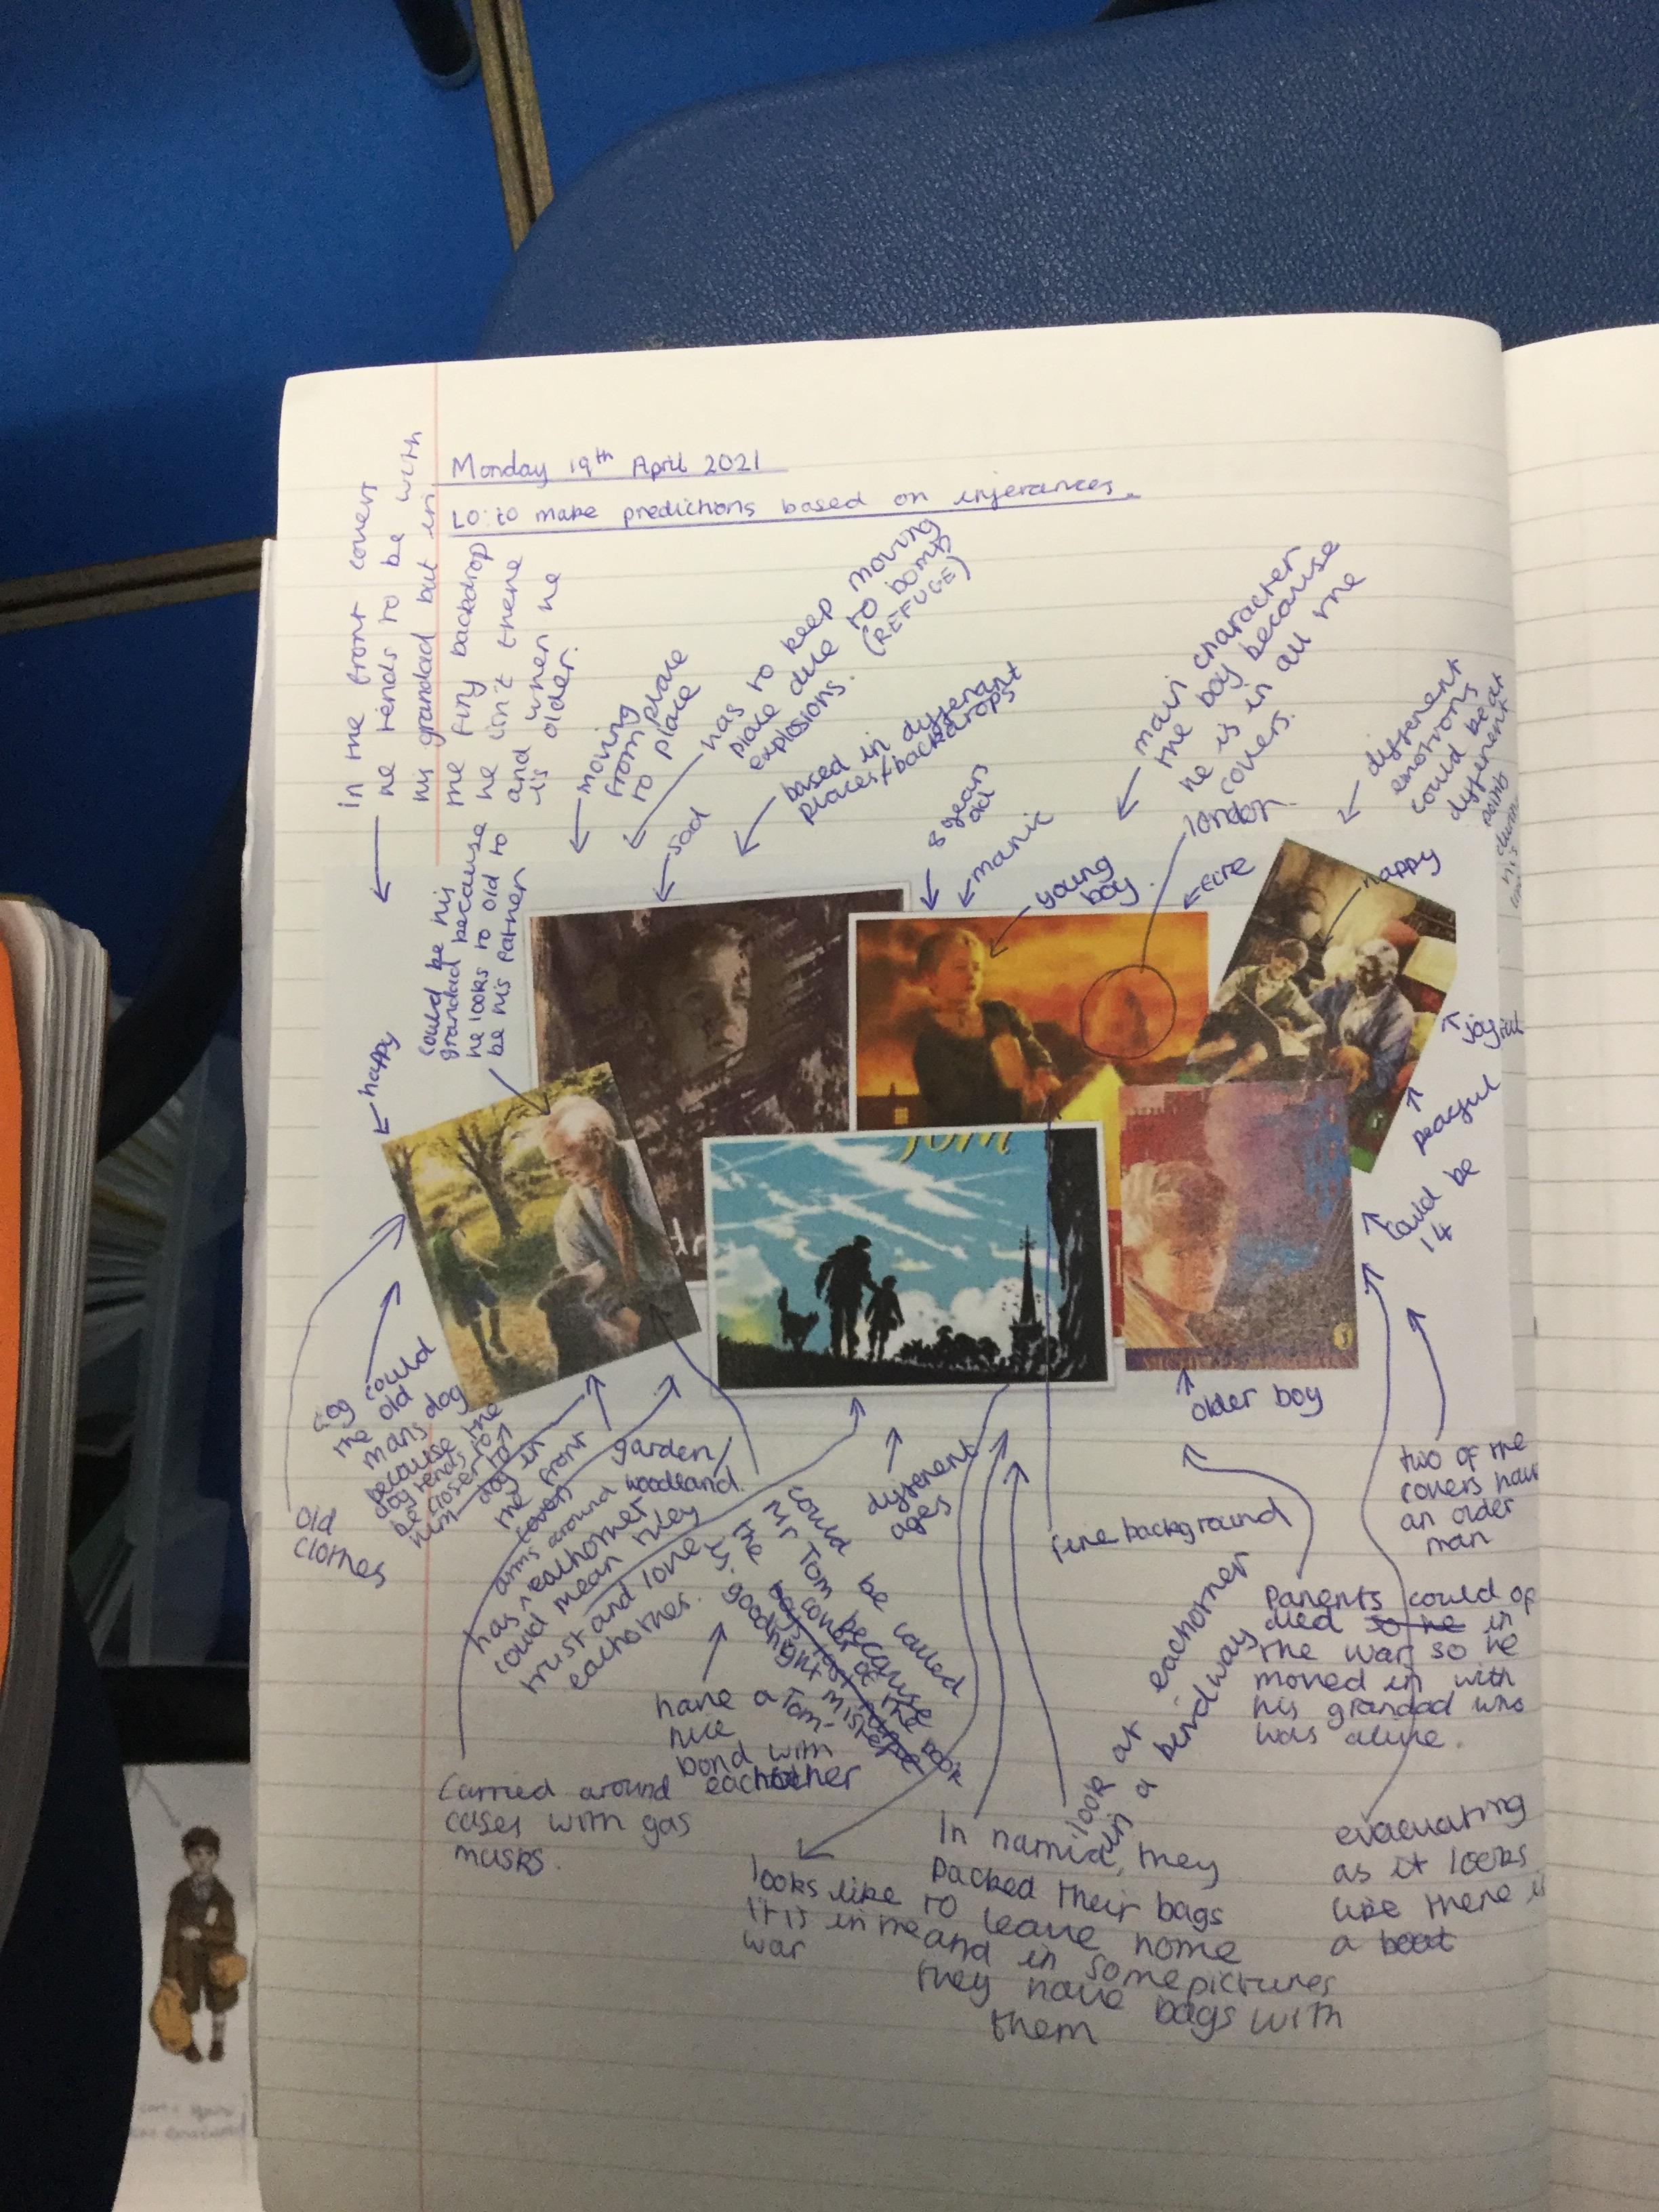 Monday 19th April 2021
LO: to make predictions based on inferances.
in the front covers
he tends to be with
his grandad but in
the firy backdrop
he isn't there
and when he
is older.
moving
from place
to place
has to keep moving
place due to bomb
explosions. (REFUGE)
sad
based in differant
places/backdrops
8 years
old
manic
young
boy
main character
the boy because
he is in all the
covers.
london
fire
different
emotions
could be at
different
points
happy
joyful
peacful
could be
14
happy
could be his
grandad because
he looks to old to
be his partner
Tom
old
clothes
dog could
the old
mans dog
because the
dog tends to
be closer to
him
dog in
the front
covers
garden/
woodland.
has arms around
eachother
could mean they
trust and love
eachother.
could be called
Mr Tom because
the cover of the book
is goodnight mister
Tom
have a
nice
bond with
eachother
different
ages
older boy
fire background
two of the
covers have
an older
man
Parents could of
died so he in
the war so he
moved in with
his grandad who
was alune.
look at eachother
in a kind way
Carried around
cases with gas
masks.
looks like
it is in the
war
In narnia, they
packed their bags
to leave home
and in some pictures
they have bags with
them
evacuating
as it looks
like there is
a boat